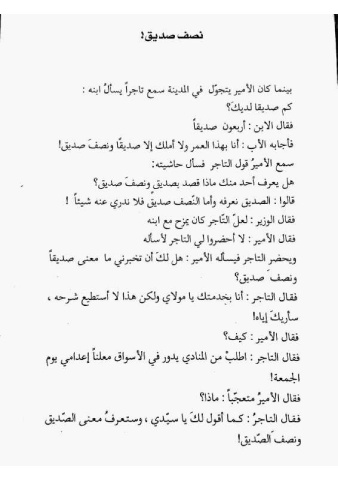 نصف صديق!
بينما كان الأمير يتجوّل في المدينة سمع تاجراً يسألُ ابنه :
كم صديقا لديكَ؟
فقال الابن : أربعون صديقاً
فأجابه الأب : أنا بهذا العمر ولا أملك إلا صديقًا ونصفَ صديق!
سمع الأميرُ قول التاجر فسأل حاشيته:
هل يعرف أحد منك ماذا قصد بصديق ونصفَ صديق؟
قالوا : الصديق نعرفه وأما النّصف صديقٌ فلا ندري عنه شيئاً !
فقال الوزير : لعلّ التّاجر كان يمزح مع ابنه
فقال الأمير : لا أحضروا لي التاجر لأسأله
ويحضر التاجر فيسأله الأمير : هل لكَ أن تخبرني ما معنى صديقاً
ونصفَ صديق؟
فقال التاجر : أنا بخدمتك يا مولاي ولكن هذا لا أستطيع شرحه ،
سأريكَ إياه!
فقال الأمير : كيف؟
فقال التاجر : اطلبْ من المنادي يدور في الأسواق معلناً إعدامي يوم
الجمعة!
فقال الأميرُ متعجّباً : ماذا؟
فقال التاجرُ : كما أقول لكَ يا سيّدي ، وستعرفُ معنى الصّديق
ونصفَ الصّديق!